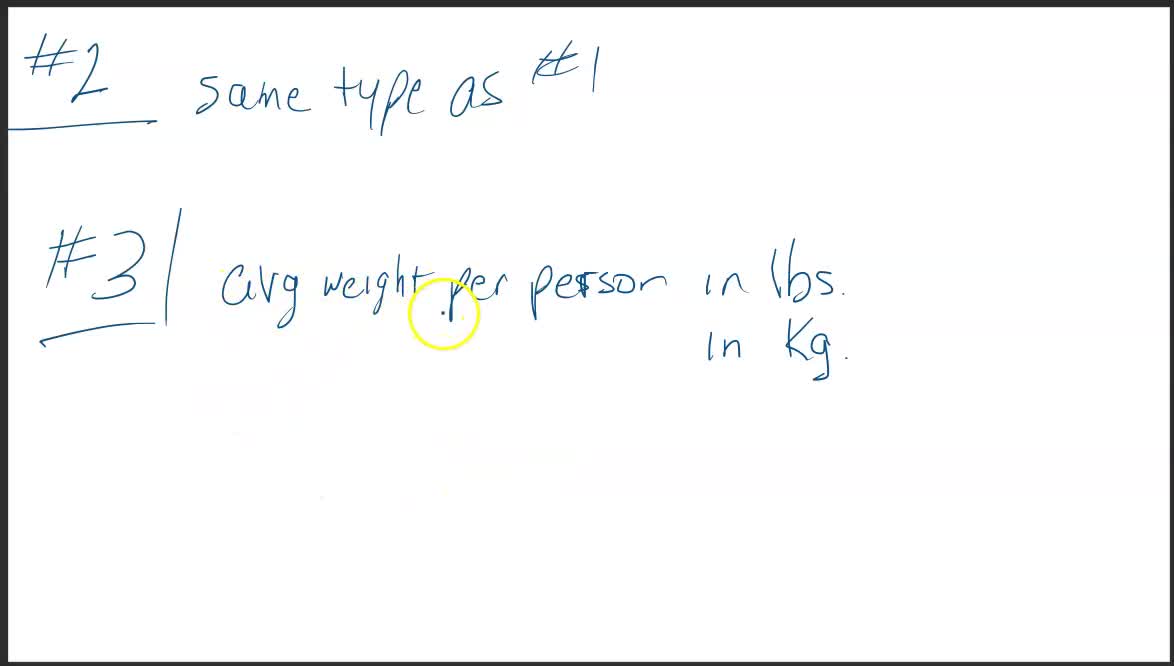 #2 same type as #1
#3 avg weight per person in lbs.
in Kg.